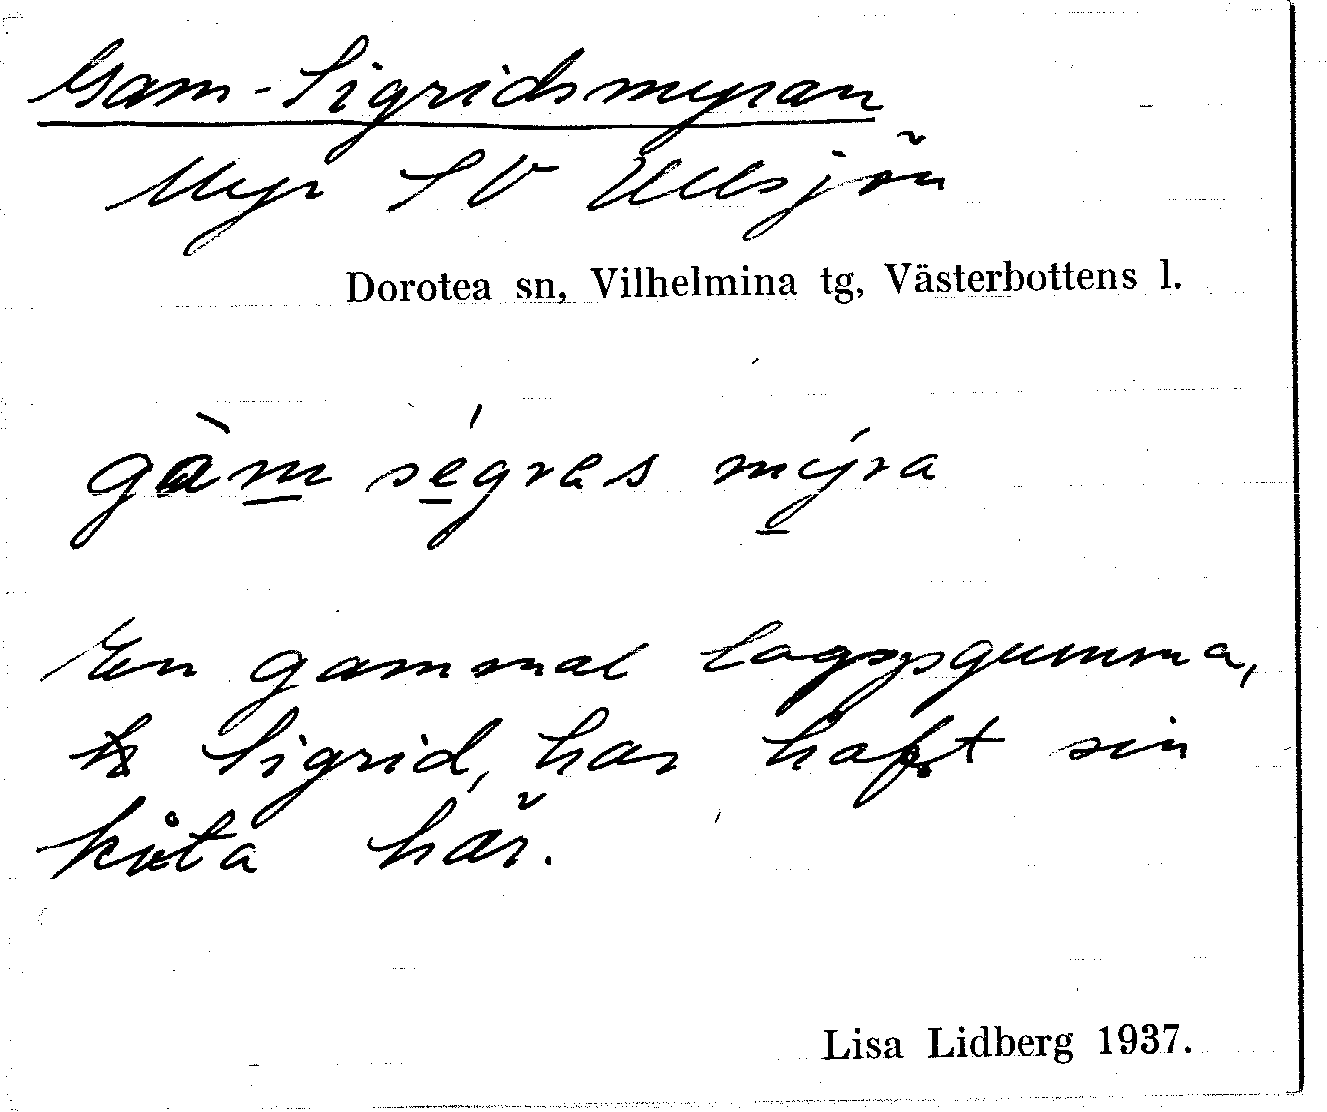 Gam-Sigridsmyran
Myr SV Ullsjön
Dorotea sn, Vilhelmina tg, Västerbottens l.
gàm ségras mýra
En gammal lappgumma,
Sigrid, har haft sin
kåta här.
Lisa Lidberg 1937.